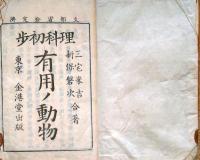 文部省検定済
理科初歩
三宅米吉
新保磐次 合著
有用ノ動物
東京 金港堂出版